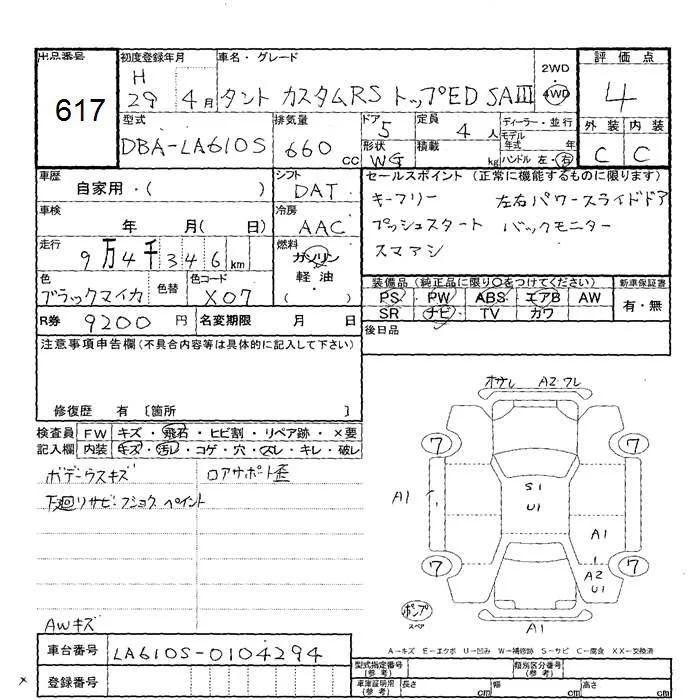 出品番号 初度登録年月 車名・グレード 2WD 評価点
617 H 29 4月 タント カスタムRS トップED SAⅢ 4WD 4
外装 内装
C C
型式 排気量 ドア 定員 ディーラー・並行
DBA-LA610S 660cc 5 4人 モデル年式 年
形状 積載 ハンドル 左・右
WG kg
車歴 シフト セールスポイント(正常に機能するものに限ります)
自家用・( ) DAT キーフリー 左右パワースライドドア
車検 冷房 プッシュスタート バックモニター
年 月( 日) AAC スマアシ
走行 燃料
9万4千346km ガソリン
軽油
( )
色 色替 色コード 装備品(純正品に限り○をつけてください) 新車保証書
ブラックマイカ X07 PS PW ABS エアB AW 有・無
SR ナビ TV カワ
R券 9200円 名変期限 月 日 後日品
注意事項申告欄(不具合内容等は具体的に記入して下さい)
修復歴 有 〔箇所 〕
検査員 FW キズ・飛石・ヒビ割・リペア跡・×要
記入欄 内装 キズ・汚レ・コゲ・穴・スレ・キレ・破レ
ボデーウスキズ ロアサポート歪
下廻りサビ・フショク ペイント
AWキズ
オサレ A2 ワレ
7 7
A1 S1
U1
A1
1
7 A2 7
U1
ポンプ
スペア
A1
A→キズ E→エクボ U→凹み W→補修跡 S→サビ C→腐食 XX→交換済
車台番号 LA610S-0104294
登録番号
型式指定番号(参考) 類別区分番号(参考)
車庫証明用(参考) 長さ cm 幅 cm 高さ cm